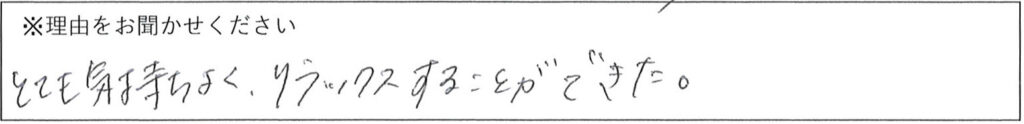 ※理由をお聞かせください
とても気持ちよく、リラックスすることができた。